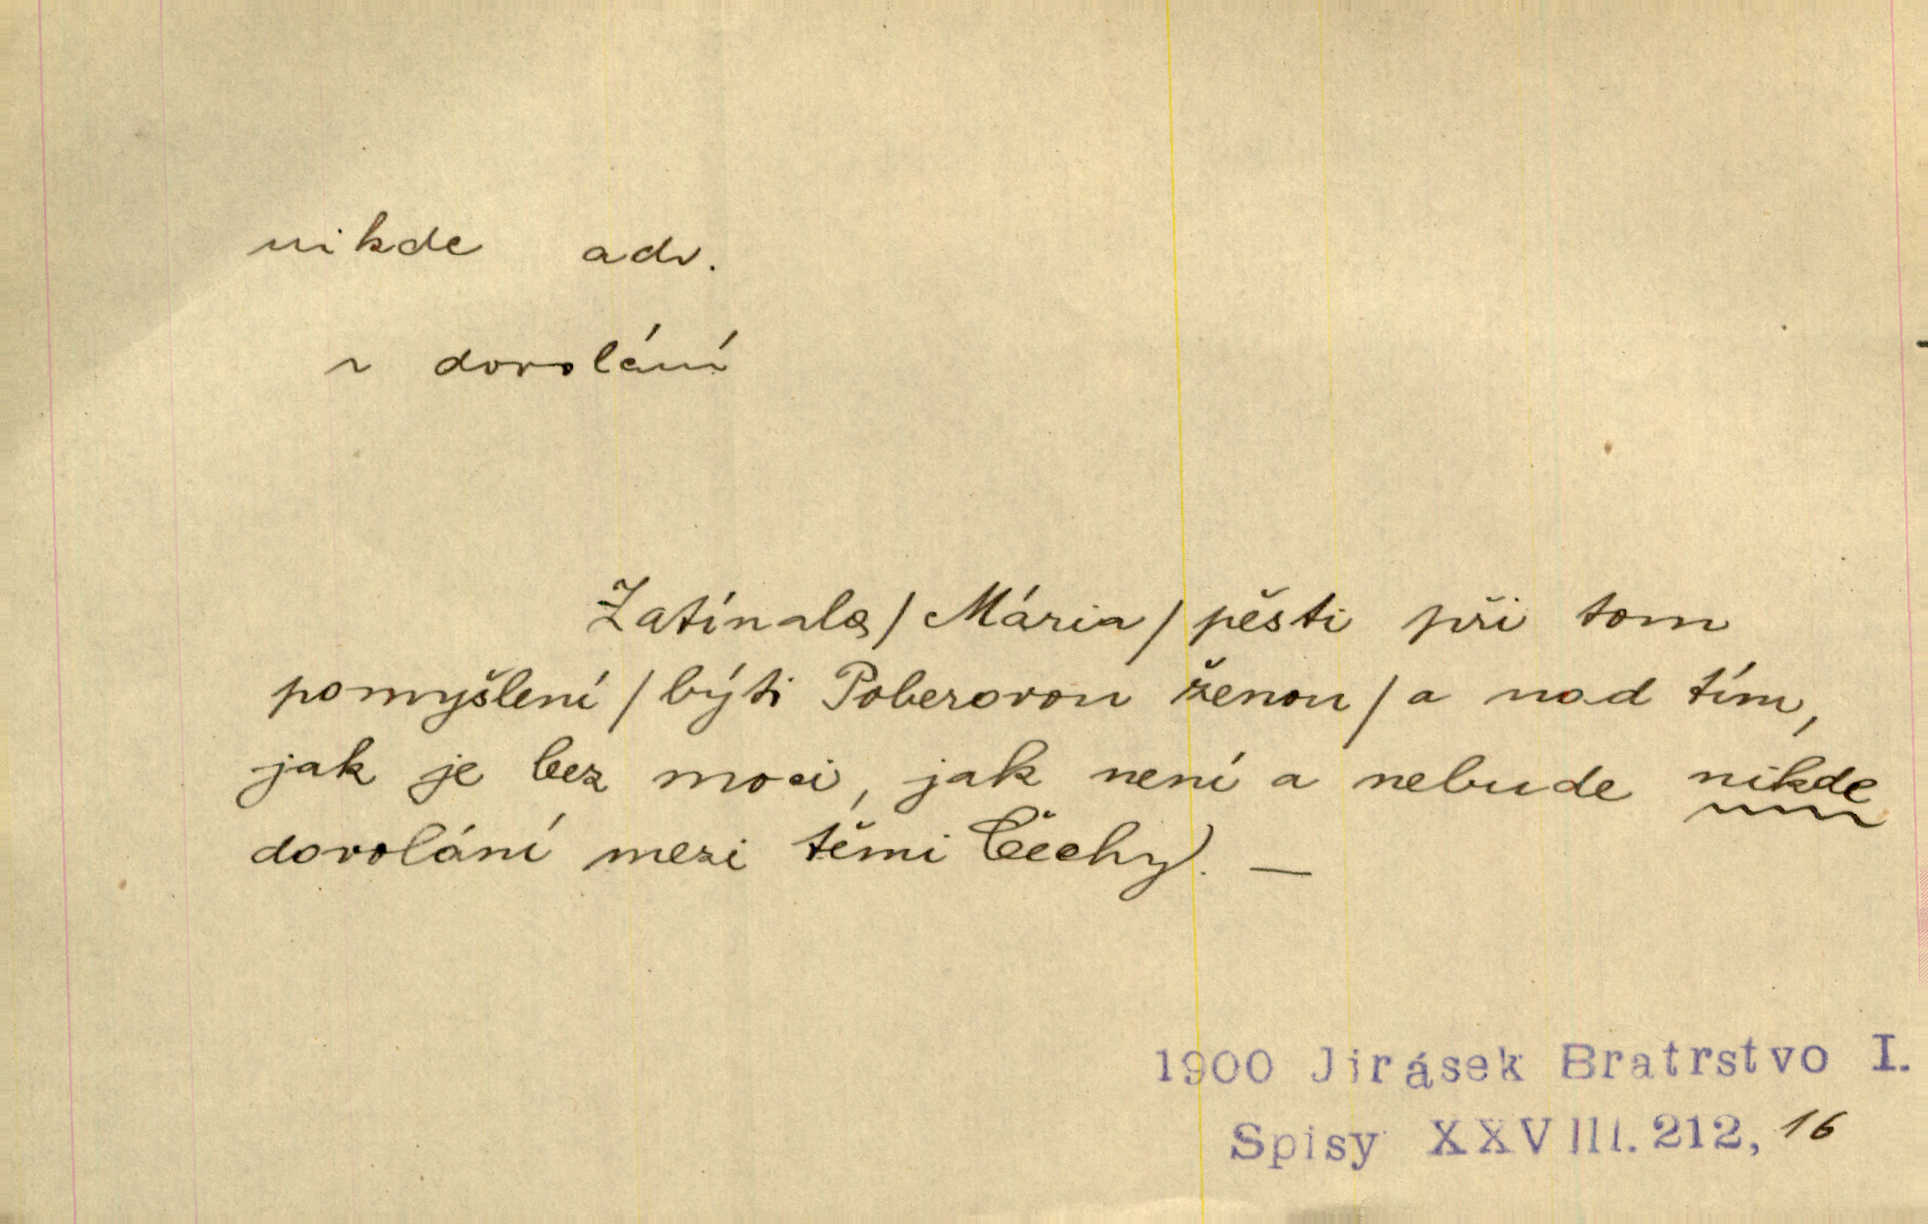 nikde adv.
~ dovolání
Zatínala / Mária / pěsti při tom
pomyšlení / býti Poberovou ženou / a nad tím,
jak je bez moci, jak není a nebude nikde
dovolání mezi těmi Čechy. —
1900 Jirásek Bratrstvo I.
Spisy XXVIII. 212, 16